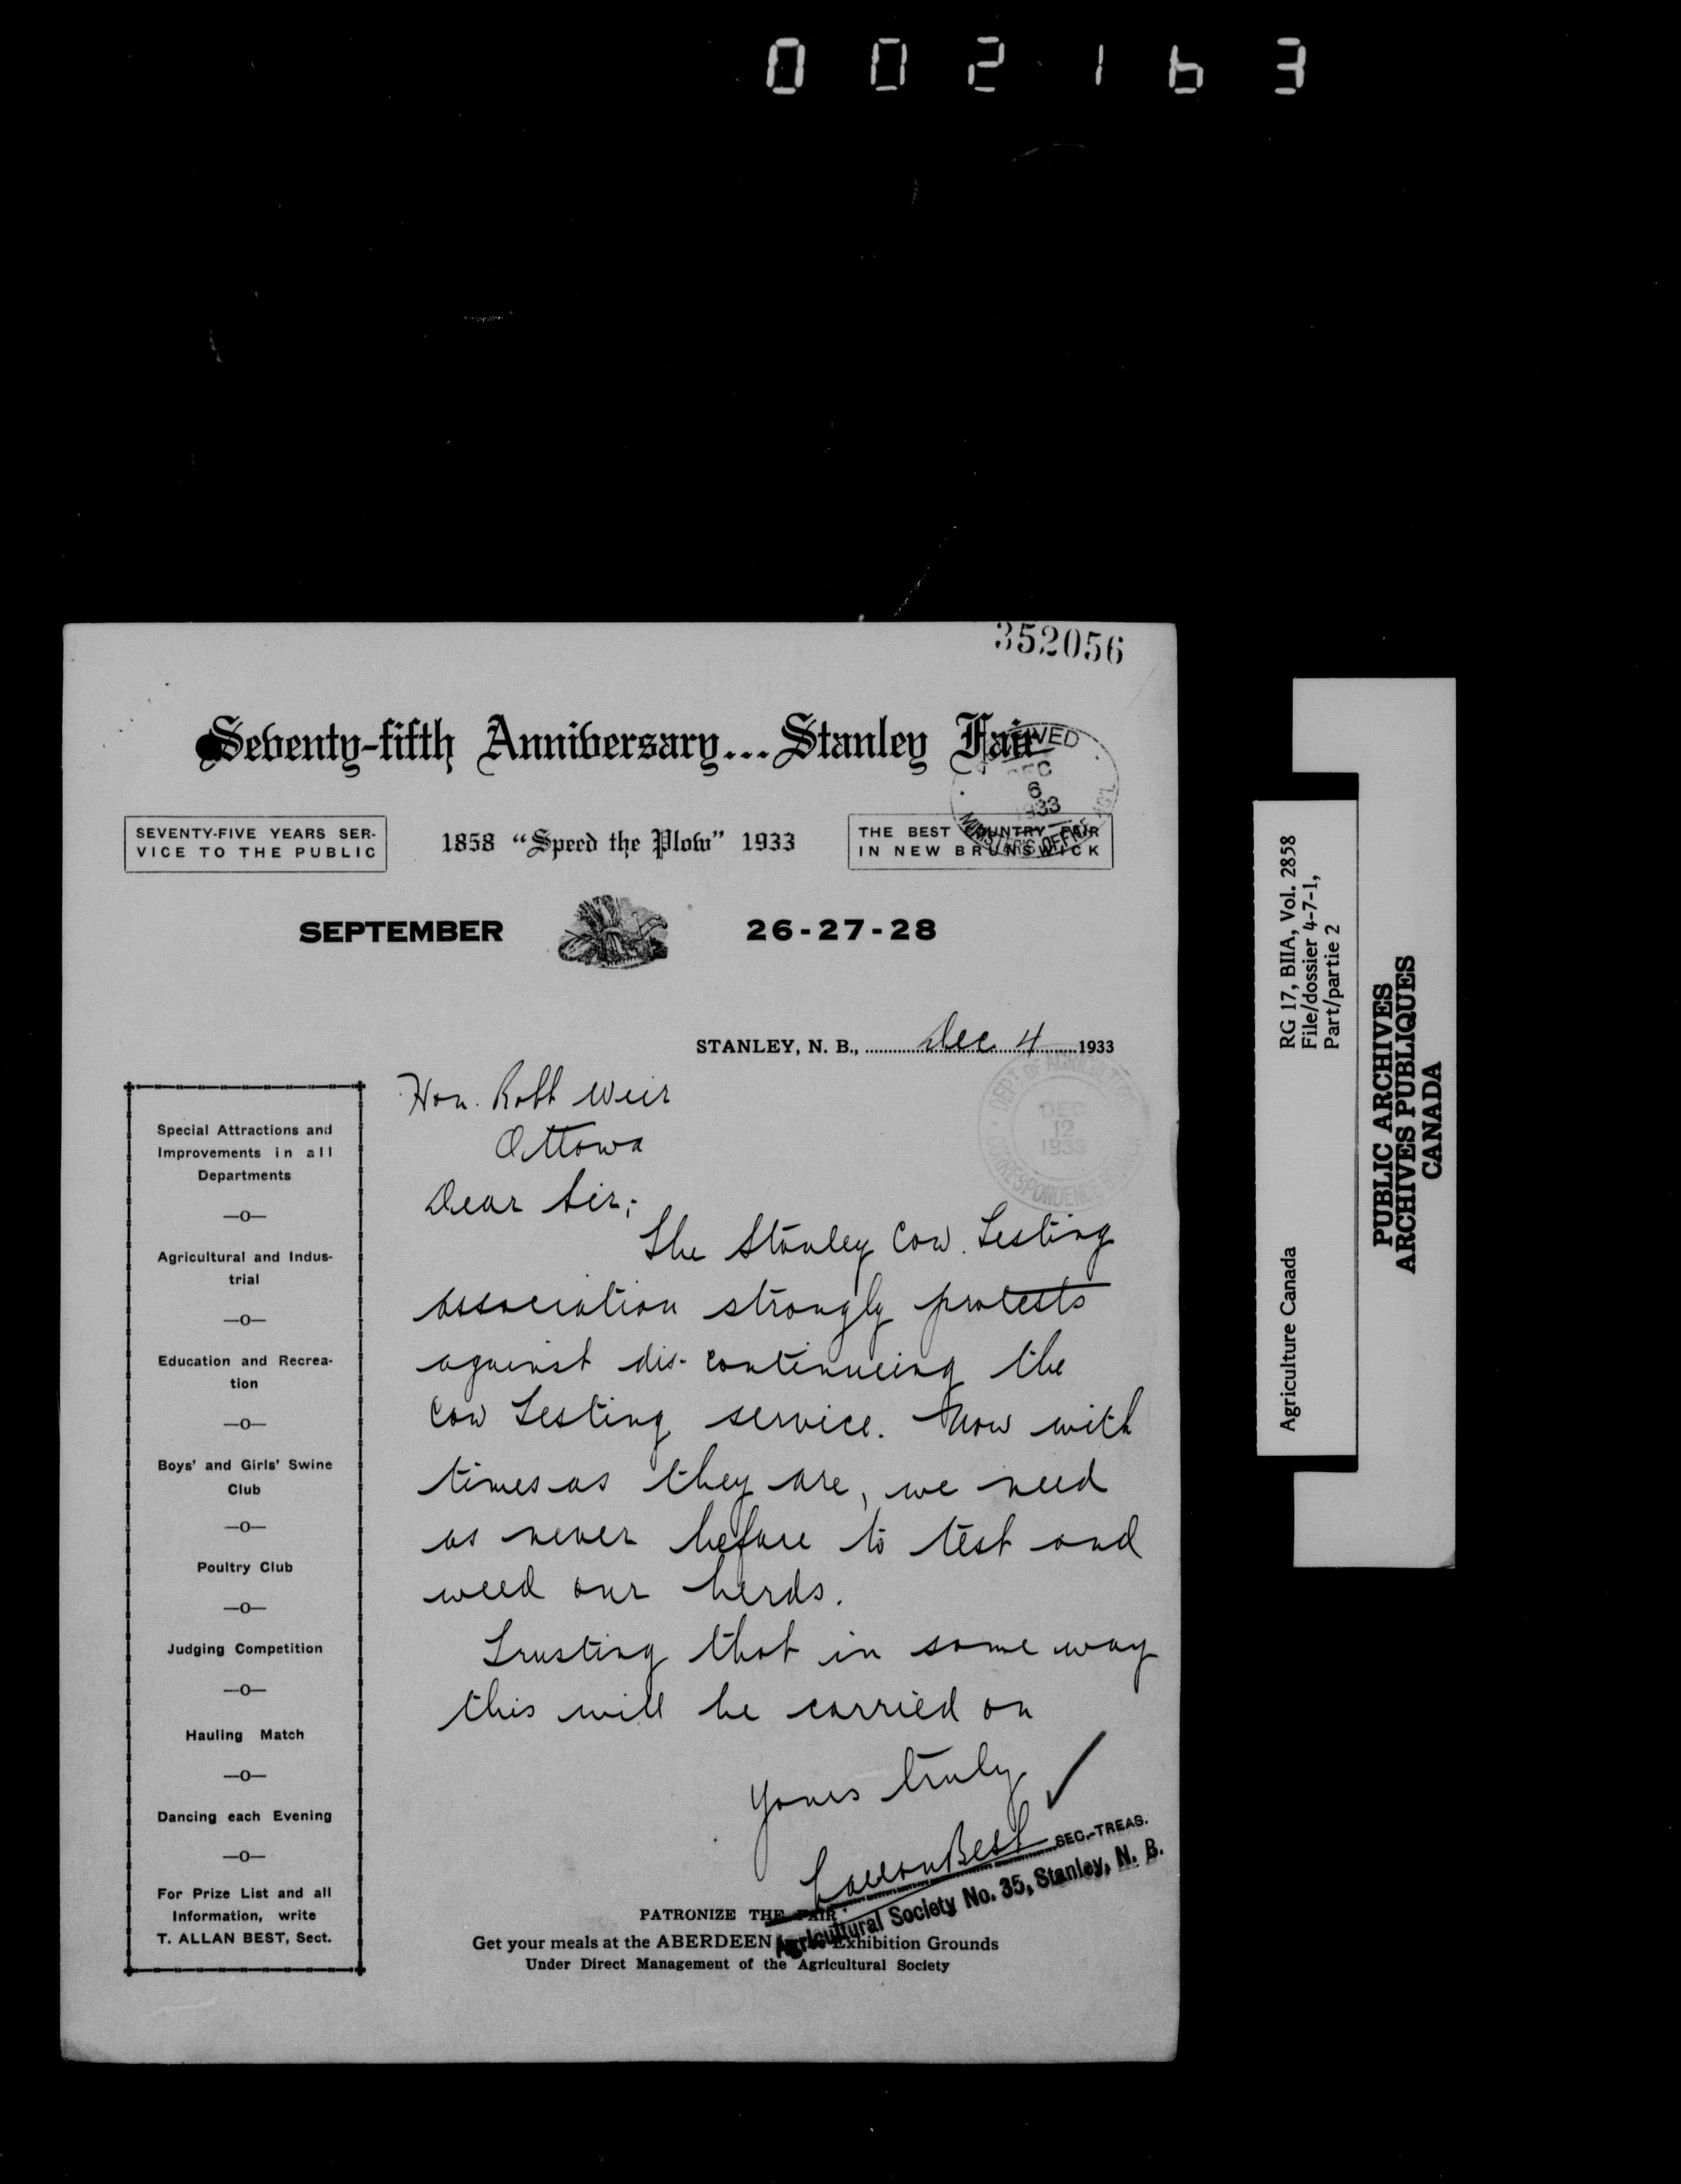 002163
352056
Seventy-fifth Anniversary... Stanley Fair
SEVENTY-FIVE YEARS SER-
VICE TO THE PUBLIC
1858 "Speed the Plow" 1933
THE BEST COUNTRY FAIR
IN NEW BRUNSWICK
DEC
6
1933
MINISTER'S OFFICE
SEPTEMBER 26-27-28
STANLEY, N. B., Dec 4 1933
DEPT OF AGRICULTURE
DEC
12
1933
CORRESPONDENCE
Hon. Robt Weir
Ottowa
Dear Sir;-
The Stanley Cow Testing
association strongly protests
against dis-continueing the
Cow Testing service. Now with
times as they are, we need
as never before to test and
weed our herds.
Trusting that in some way
this will be carried on
Yours truly
T Allan Best SEC.-TREAS.
Agricultural Society No. 35, Stanley, N. B.
Special Attractions and
Improvements in all
Departments
—o—
Agricultural and Indus-
trial
—o—
Education and Recrea-
tion
—o—
Boys' and Girls' Swine
Club
—o—
Poultry Club
—o—
Judging Competition
—o—
Hauling Match
—o—
Dancing each Evening
—o—
For Prize List and all
Information, write
T. ALLAN BEST, Sect.
PATRONIZE THE FAIR
Get your meals at the ABERDEEN Exhibition Grounds
Under Direct Management of the Agricultural Society
Agriculture Canada RG 17, BIIA, Vol. 2858
File/dossier 4-7-1,
Part/partie 2
PUBLIC ARCHIVES
ARCHIVES PUBLIQUES
CANADA